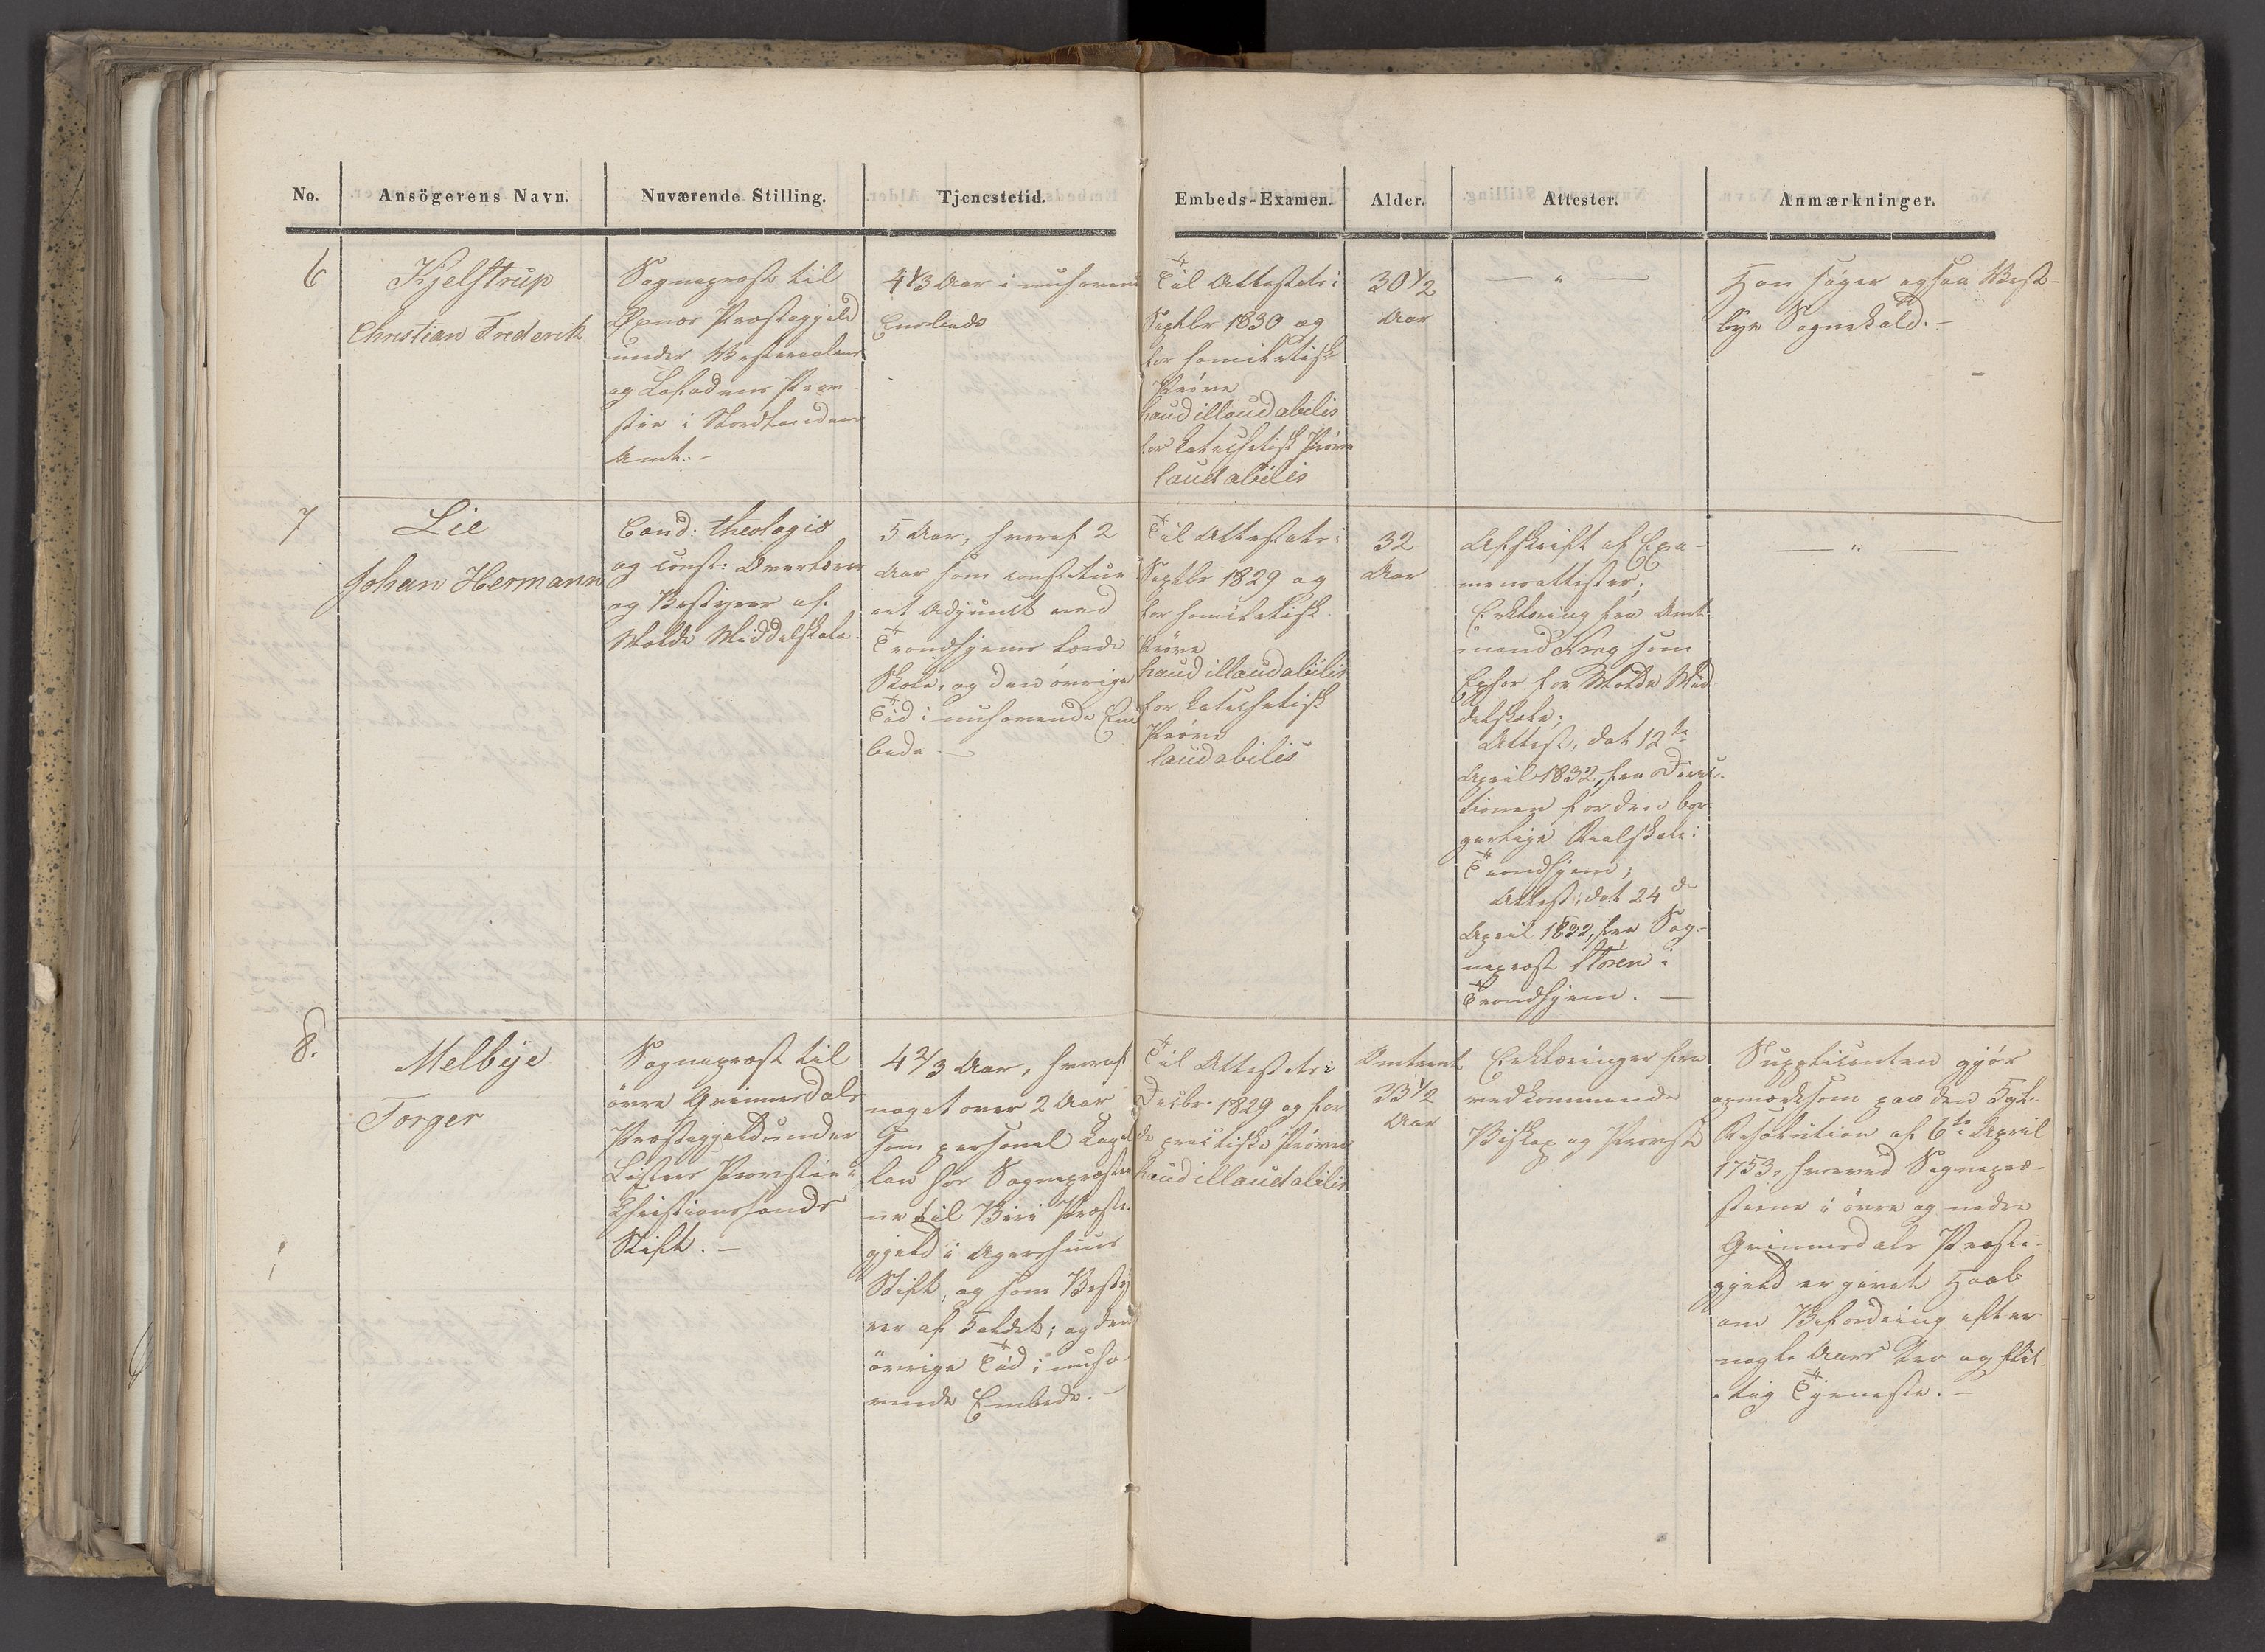 No.
Ansögerens Navn.
Nuværende Stilling.
Tjenestetid.
Embeds-Examen.
Alder.
Attester.
Anmærkninger.
6
Kjelstrup
Christian Frederik
Sognepræst til
Øxnæs Præstegjeld
under Vesteraalens
og Lofodens Prov-
stie i Nordlandenes
Amt. -
4 1/3 Aar i nuhavende
Embede
Til Attestats i
Septbr 1830 og
for homiletisk
Prøve
haud illaudabilis
for katechetisk Prøve
laudabilis
30 1/2
Aar
— " —
Han søger ogsaa Vest-
bye Sognekald. -
7
Lie
Johan Hermann
Cand: theologiæ
og const: Overlærer
og Bestyrer af
Molde Middelskole
5 Aar, hvoraf 2
Aar som constitue-
ret Adjunct ved
Trondhjems lærde
Skole, og den øvrige
Tid i nuhavende Em
bede. —
Til Attestats i
Septbr 1829 og
for homiletisk
Prøve
haud illaudabilis
for katechetisk
Prøve
laudabilis
32
Aar
Afskrift af Exa-
mensattester;
Erklæring fra Amt-
mand Krog som
Ephor for Molde Mid-
delskole;
Attest, dat 12te
April 1832, fra Direc-
tionen for den bor-
gerlige Realskole i
Trondhjem;
Attest, dat 24de
April 1832, fra Sog-
nepræst Stören i
Trondhjem. —
— " —
8.
Melbÿe
Torger
Sognepræst til
övre Qvinnesdals
Præstegjeld under
Listers Provstie i
Christianssands
Stift. -
4 2/3 Aar, hvoraf
noget over 2 Aar
som personel Capel-
lan hos Sognepræster-
ne til Biri Præste-
gjeld i Agershuus
Stift, og som Besty-
rer af Kaldet; og den
övrige Tid i nuha-
vende Embede. -
Til Attestats i
Decbr 1829 og for
de practiske Prøver
haud illaudabilis
Omtrent
33 1/2
Aar
Erklæringer fra
vedkommende
Biskop og Provst
Supplicanten gjör
opmærksom paa den Kgl.
Resolution af 6te April
1753, hvorved Sognepræ-
sterne i övre og nedre
Qvinnesdals Præste-
gjeld er givet Haab
om Befordring efter
nogle Aars tro og flit-
tig Tjeneste. -